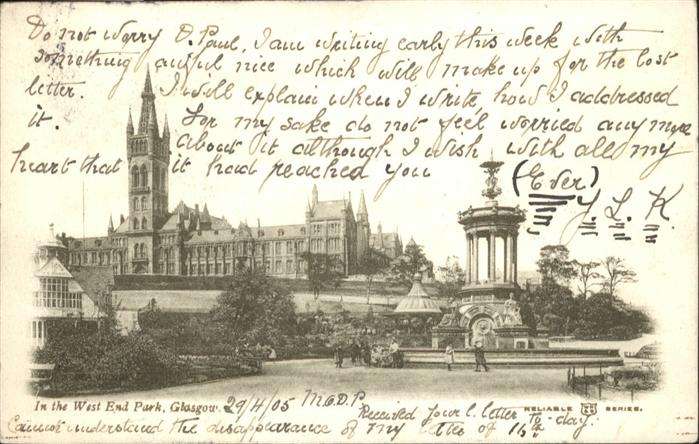 Do not worry D. Paul, I am writing early this week with
something awful nice which will make up for the lost
letter. I will explain when I write how I addressed
it. For my sake do not feel worried any more
about it although I wish with all my
heart that it had reached you
(Ever)
J. L. K.
In the West End Park, Glasgow. 29/4/05 M.O.D.P.
RELIABLE SERIES.
Received your l. letter to-day.
Cannot understand the disappearance of my letter of 16th